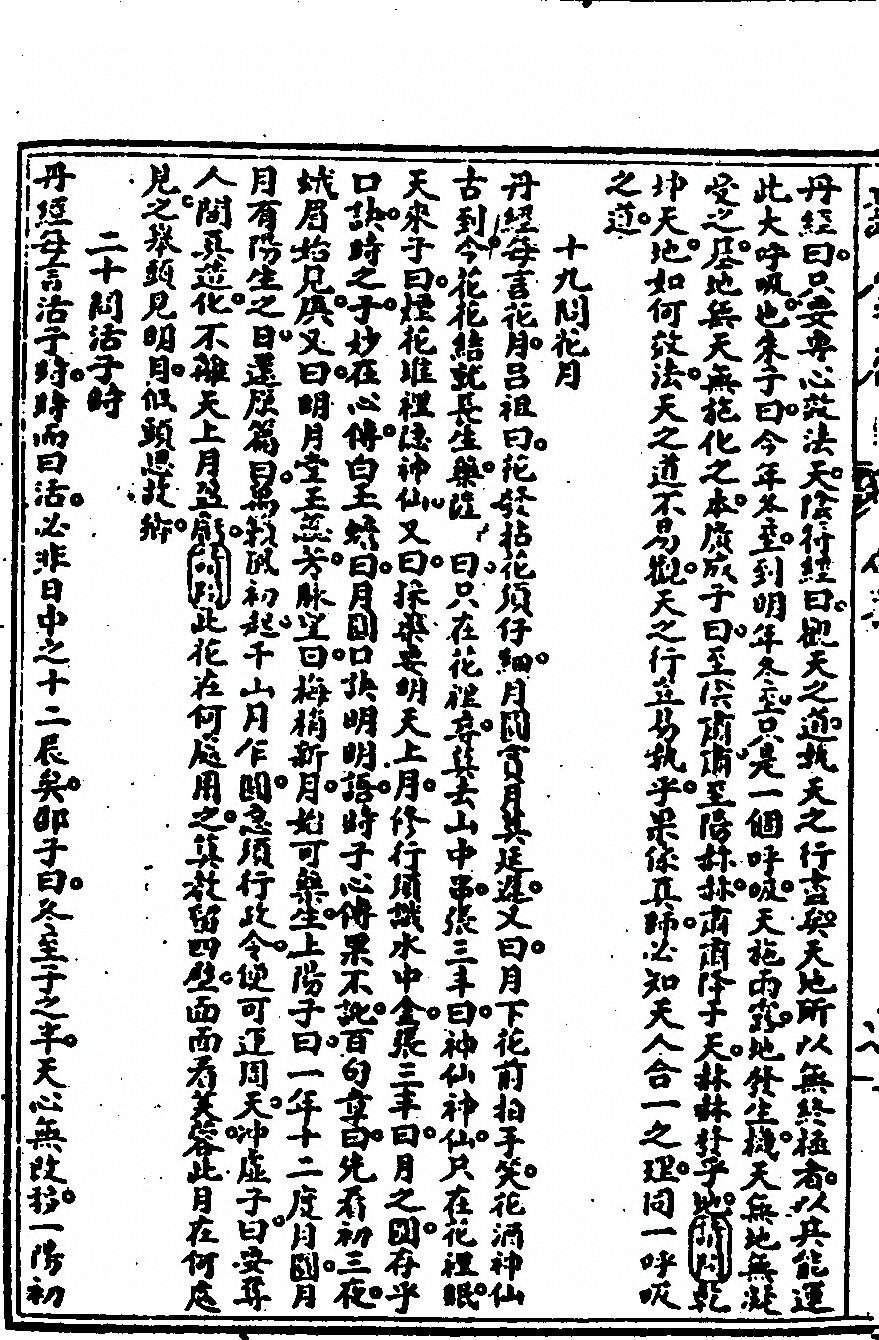 丹經曰只要專心效法天陰符經曰觀天之道執天之行盡矣天地所以無終極者以其能運
此大呼吸也朱子曰今年冬至到明年冬至只是一個呼吸天施雨露地發生機天無地無凝
受之基地無天無施化之本廣成子曰至陰肅肅至陽赫赫肅肅降于天赫赫發乎地請問乾
坤天地如何效法天之道不易觀天之行豈易執乎果係真師必知天人合一之理同一呼吸
之道
十九問花月
丹經每言花月呂祖曰花發拈花須仔細月圓賞月莫延遲又曰月下花前拍手笑花酒神仙
古到今花花結就長生藥 曰只在花裡尋莫去山中 張三丰曰神仙神仙只在花裡眠
天來子曰煙花堆裡隱神仙又曰採藥要明天上月修行須識水中金張三丰曰月之圓存乎
口訣時之子妙在心傳白玉蟾曰月圓口訣明明語時子心傳果不訛百句章曰先看初三夜
蛾眉始見庚又曰明月堂 蕊芳脉望曰梅梢新月始可藥生上陽子曰一年十二度月圓月
月有陽生之日還原篇曰萬籟風初起千山月乍圓急須行政令便可運周天冲虛子曰要尋
人間真造化不離天上月盈虧請問此花在何處用之莫教留四壁面面看芙蓉此月在何處
見之舉頭見明月低頭思故鄉
二十問活子時
丹經每言活子時時而曰活必非日中之十二辰矣邵子曰冬至子之半天心無改移一陽初